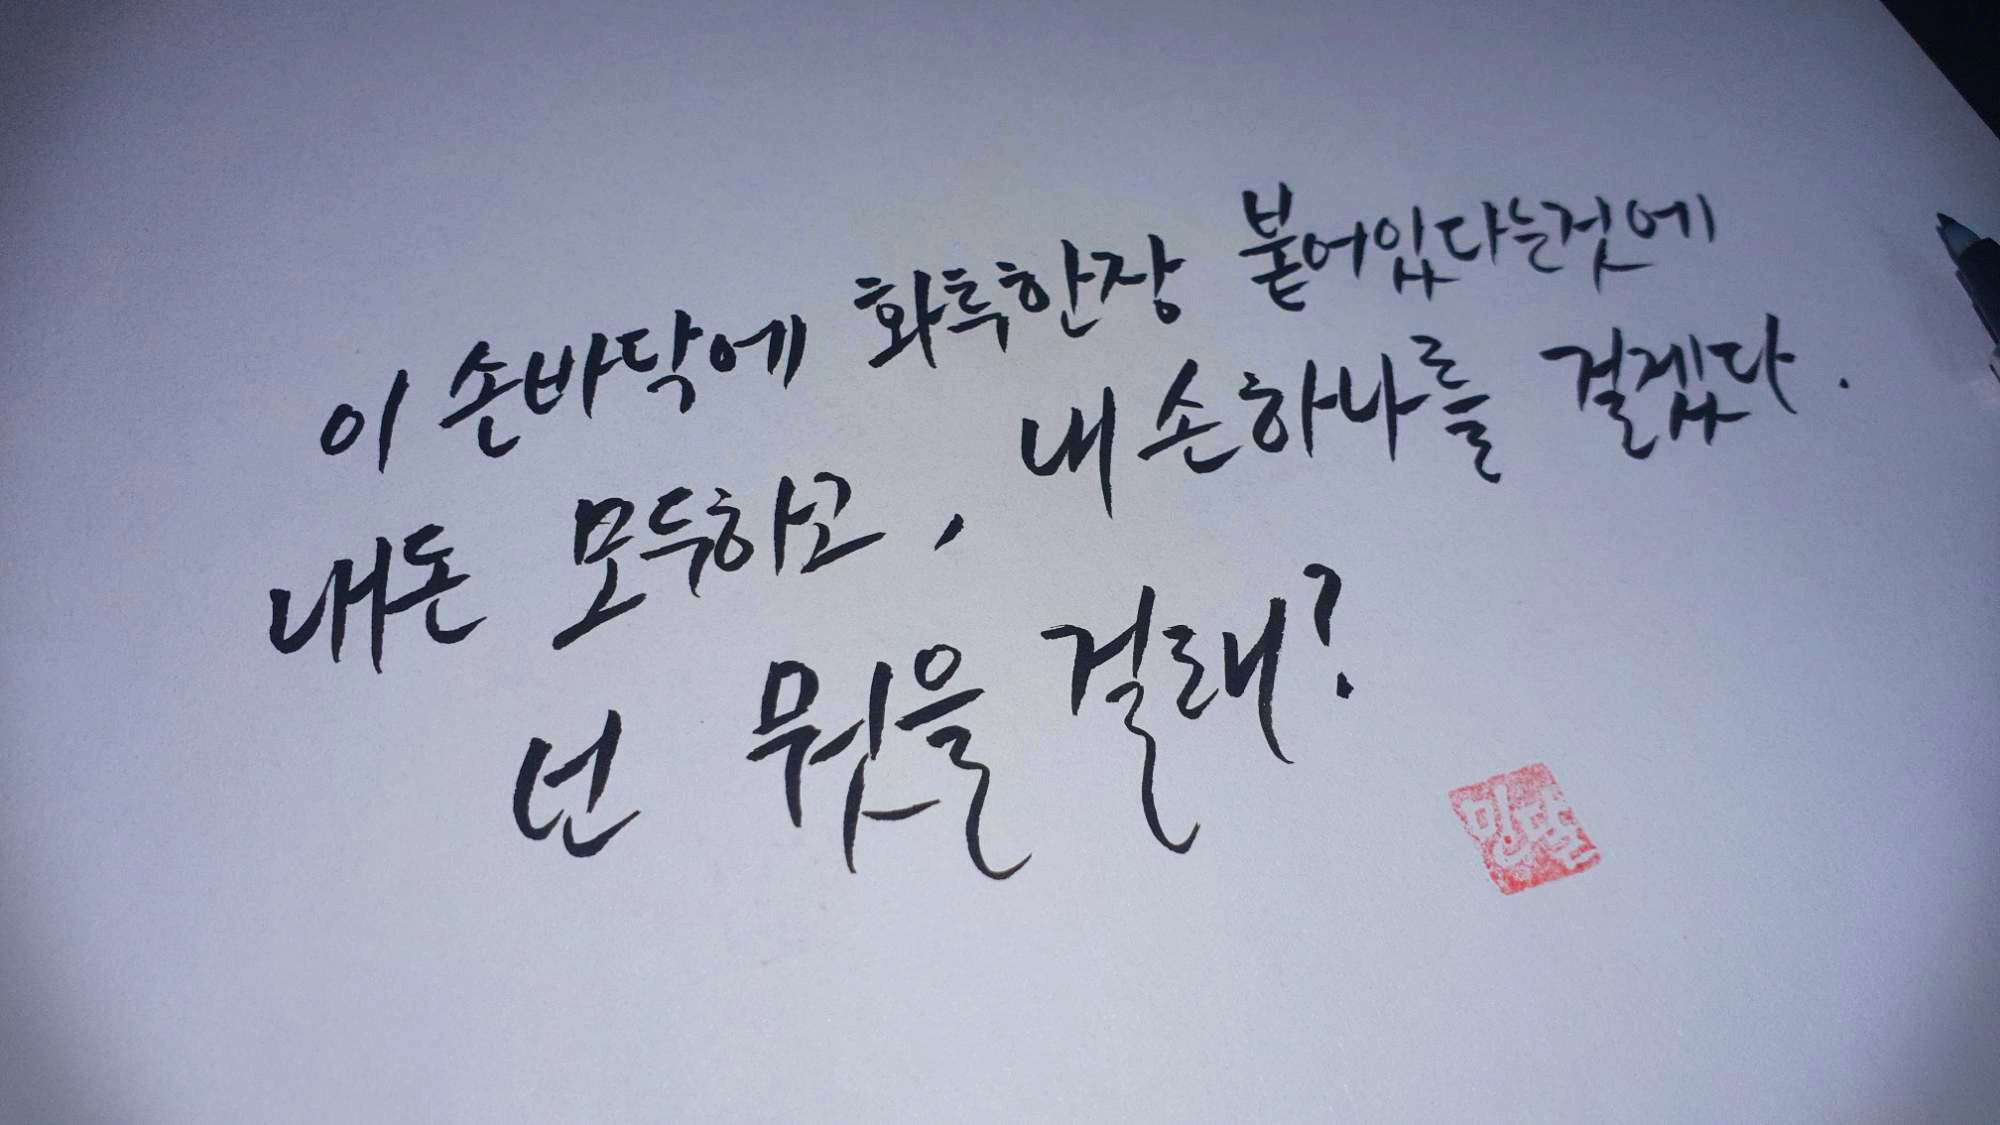 이 손바닥에 화투한장 붙어있다는것에
내돈 모두하고, 내 손하나를 걸겠다.
넌 뭣을 걸래?